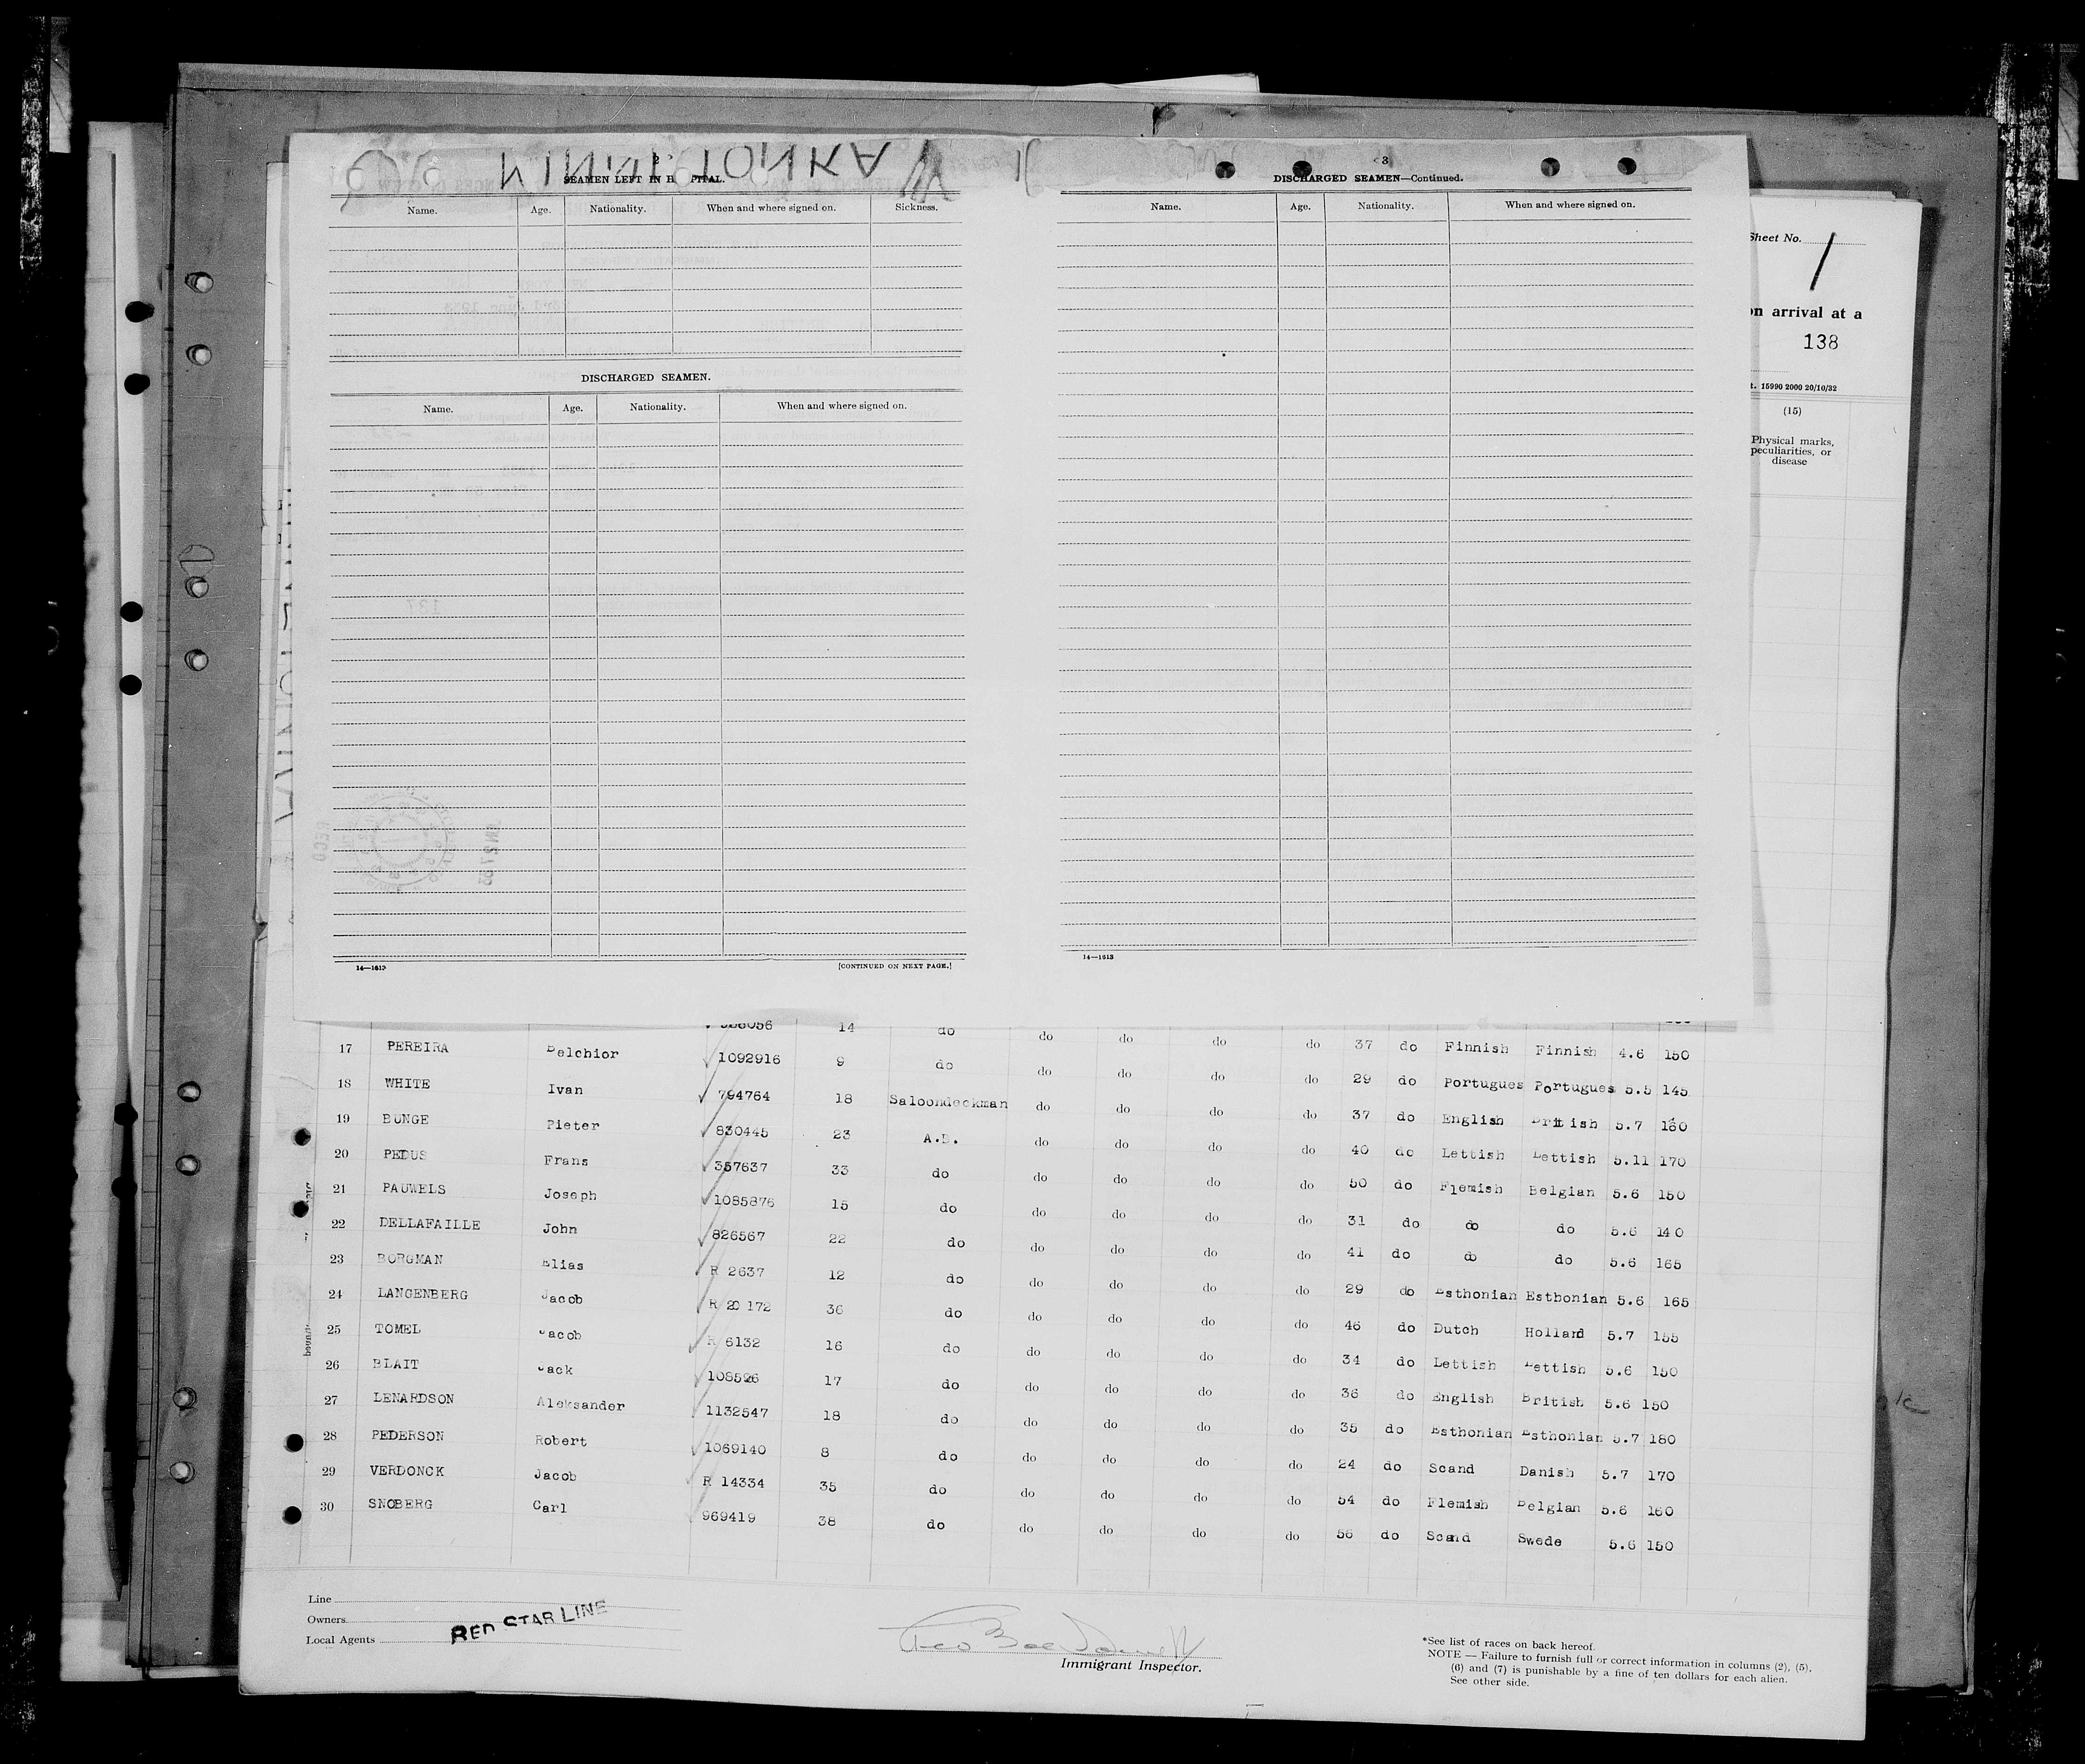 MINNETONKA
2
SEAMEN LEFT IN H PITAL.
Name. Age. Nationality. When and where signed on. Sickness.
DISCHARGED SEAMEN.
Name. Age. Nationality. When and where signed on.
14—1613 [CONTINUED ON NEXT PAGE.]
3
DISCHARGED SEAMEN—Continued.
Name. Age. Nationality. When and where signed on.
14—1613
Sheet No. 1
on arrival at a
138
t. 15990 2000 20/10/32
(15)
Physical marks,
peculiarities, or
disease
14 do do do do do 37 do Finnish Finnish 4.6 150
17 PEREIRA Belchior 1092916 9 do do do do do 29 do Portugues Portugues 5.5 145
18 WHITE Ivan 794764 18 Saloondeckman do do do do 37 do English British 5.7 160
19 BUNGE Pieter 830445 23 A.B. do do do do 40 do Lettish Lettish 5.11 170
20 PEDUS Frans 357637 33 do do do do do 50 do Flemish Belgian 5.6 150
21 PAUWELS Joseph 1085876 15 do do do do do 31 do do do 5.6 140
22 DELLAFAILLE John 826567 22 do do do do do 41 do do do 5.6 165
23 BORGMAN Elias R 2637 12 do do do do do 29 do Esthonian Esthonian 5.6 165
24 LANGENBERG Jacob R 20 172 36 do do do do do 46 do Dutch Holland 5.7 155
25 TOMEL Jacob R 6132 16 do do do do do 34 do Lettish Lettish 5.6 150
26 BLAIT Jack 108526 17 do do do do do 36 do English British 5.6 150
27 LENARDSON Aleksander 1132547 18 do do do do do 35 do Esthonian Esthonian 5.7 180
28 PEDERSON Robert 1069140 8 do do do do do 24 do Scand Danish 5.7 170
29 VERDONCK Jacob R 14334 35 do do do do do 54 do Flemish Belgian 5.6 160
30 SNOBERG Carl 969419 38 do do do do do 56 do Scand Swede 5.6 150
Line
Owners
Local Agents
RED STAR LINE
Immigrant Inspector.
*See list of races on back hereof.
NOTE — Failure to furnish full or correct information in columns (2), (5),
(6) and (7) is punishable by a fine of ten dollars for each alien.
See other side.